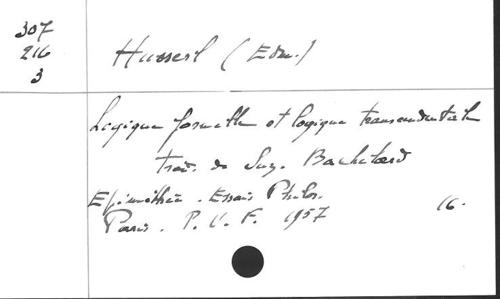 307
216
3
Husserl (Edm.)
Logique formelle et logique transcendentale
trad. de Suz. Bachelard
Epiméthée. Essais Philos.
Paris. P. U. F. 1957 16.